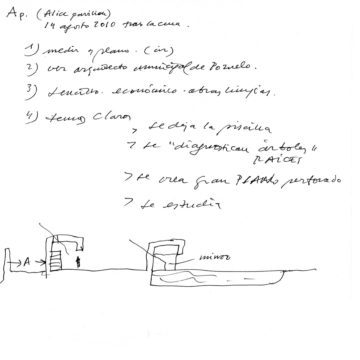 Ap. (Alice
14 agosto 2010 tras la cena.
1) medir y plano. (in)
2) ver arquitecto municipal de Pozuelo.
3) económico. obras limpias.
4) temas claros
> se deja la piscina
> se "diagnostican árboles"
RAICES
> se crea gran perforado
> se estudia
A
mirror